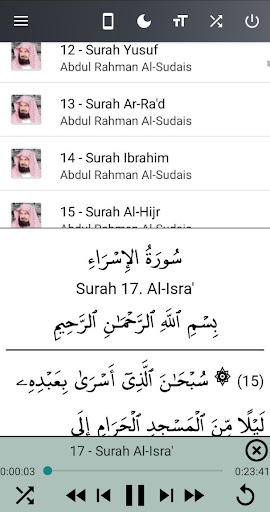 12 - Surah Yusuf
Abdul Rahman Al-Sudais
13 - Surah Ar-Ra'd
Abdul Rahman Al-Sudais
14 - Surah Ibrahim
Abdul Rahman Al-Sudais
15 - Surah Al-Hijr
Abdul Rahman Al-Sudais
سُورَةُ الإِسْرَاءِ
Surah 17. Al-Isra'
بِسْمِ ٱللَّهِ ٱلرَّحْمَٰنِ ٱلرَّحِيمِ
(15) ۞ سُبْحَانَ ٱلَّذِىٓ أَسْرَىٰ بِعَبْدِهِۦ
لَيْلًا مِّنَ ٱلْمَسْجِدِ ٱلْحَرَامِ إِلَى
17 - Surah Al-Isra'
0:00:03
0:23:41